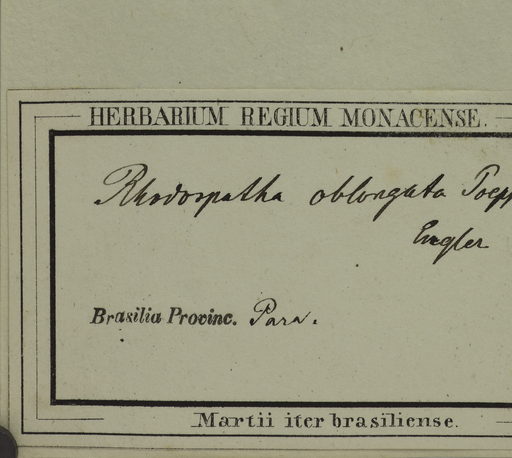 HERBARIUM REGIUM MONACENSE.
Rhodospatha oblongata Poepp
Engler
Brasilia Provinc. Para.
Martii iter brasiliense.